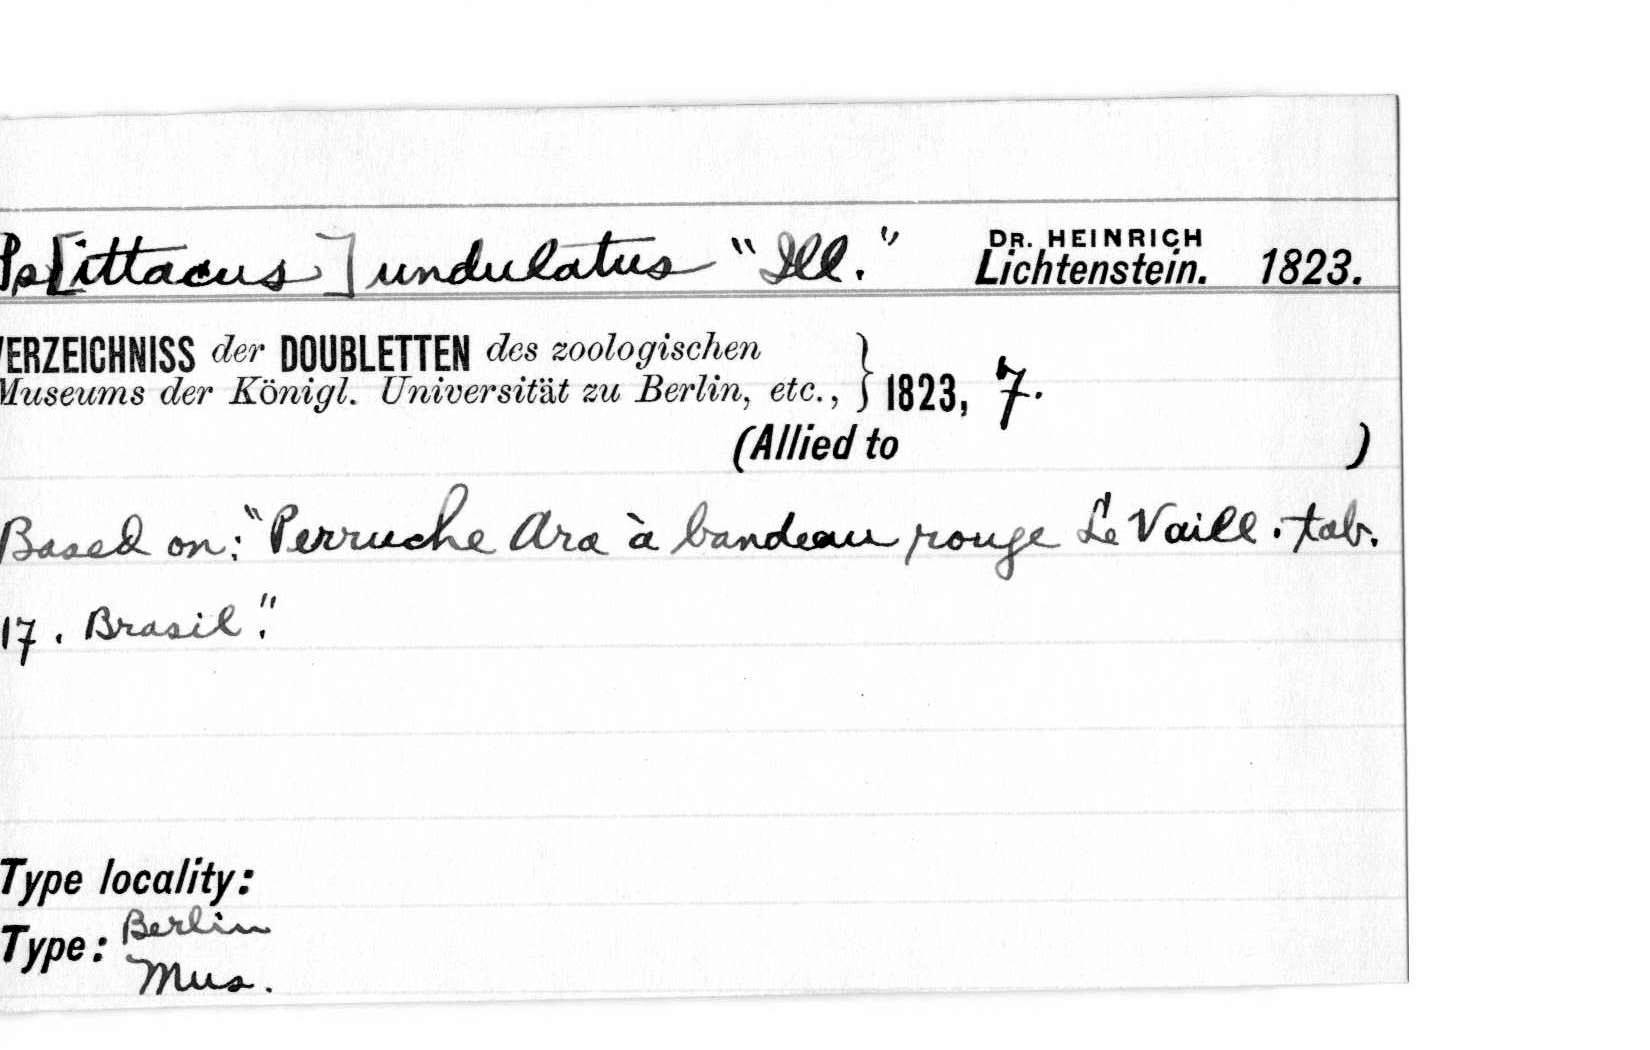 Ps[ittacus] undulatus "Ill." DR. HEINRICH Lichtenstein. 1823.
VERZEICHNISS der DOUBLETTEN des zoologischen
Museums der Königl. Universität zu Berlin, etc., } 1823, 7.
(Allied to )
Based on: "Perruche Ara à bandeau rouge Le Vaill. tab.
17. Brasil."
Type locality:
Type: Berlin
Mus.